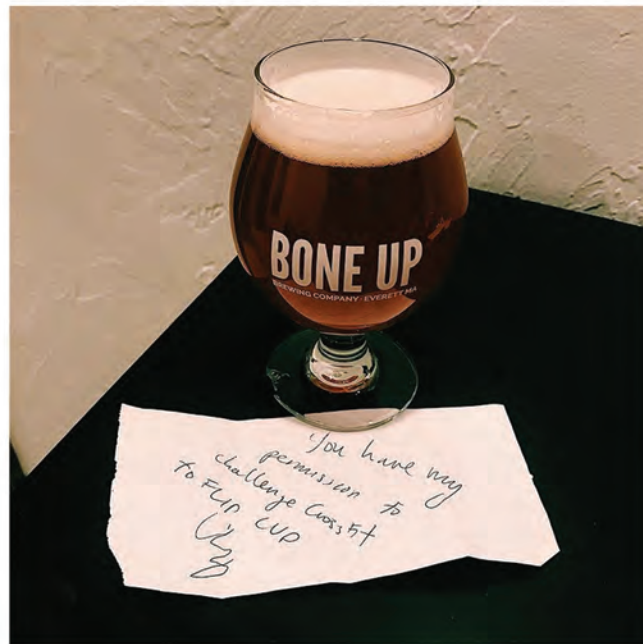 BONE UP
BREWING COMPANY · EVERETT MA
You have my
permission to
challenge Crossfit
to FLIP CUP